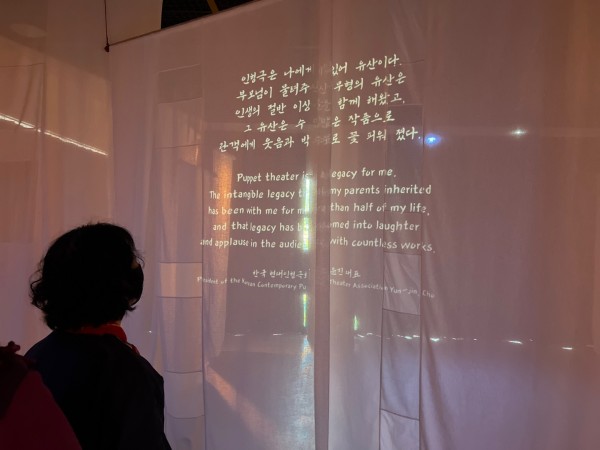 인형극은 나에게 있어 유산이다.
부모님이 물려주신 무형의 유산은
인생의 절반 이상을 함께 해왔고,
그 유산은 수 많은 작품으로
관객에게 웃음과 박수로 꽃 피워 졌다.
Puppet theater is a legacy for me.
The intangible legacy that my parents inherited
has been with me for more than half of my life,
and that legacy has bloomed into laughter
and applause in the audience with countless works.
한국 대표
President of the Korean Contemporary Theater Association Yun-jin, Cho